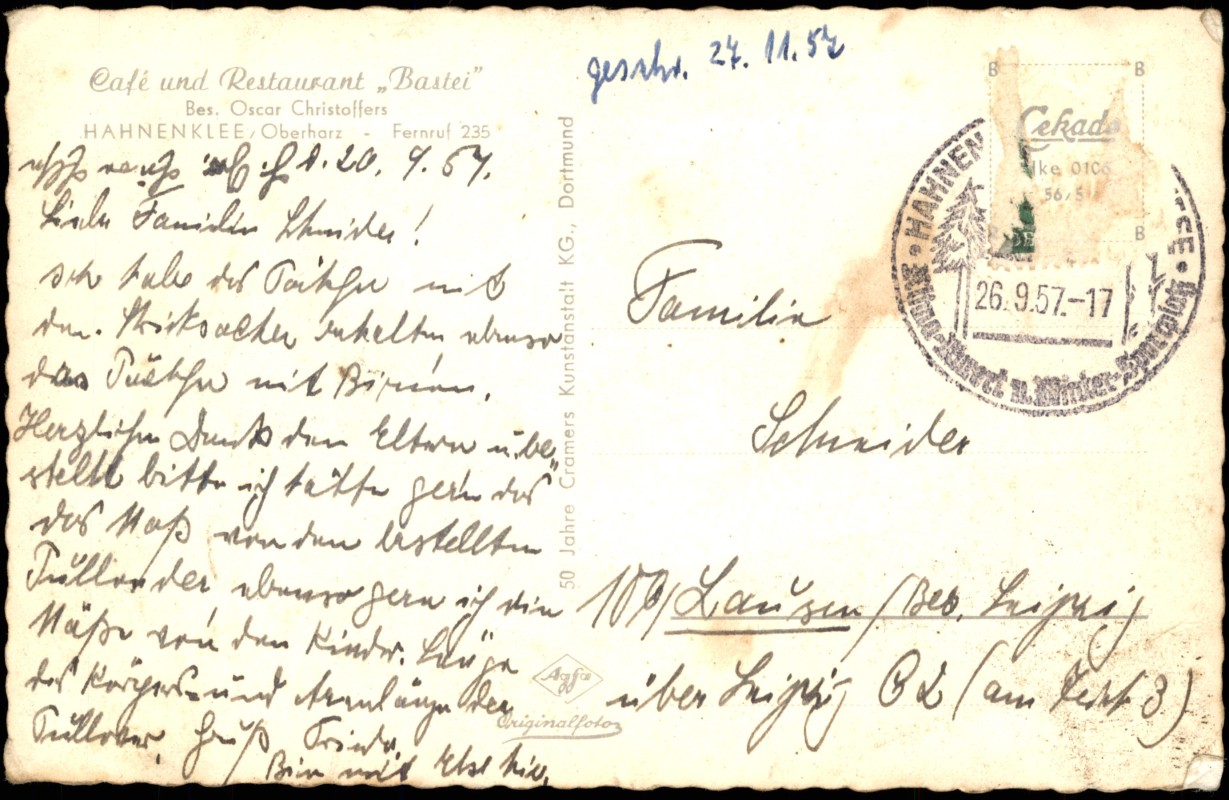 Café und Restaurant „Bastei"
Bes. Oscar Christoffers
HAHNENKLEE/Oberharz - Fernruf 235
d. 20. 9. 57.
Liebe Familie Schneider!
Ich habe das Päckchen mit
den Stricksachen erhalten ebenso
das Päckchen mit Birnen.
Herzlichen Dank den Eltern u. be„
stellt bitte ich hätte gern das
das Maß von den bestellten
Pullover ebenso gern ich die
Mäße von den Kinder. Länge
des Körpers und Armlänge der
Pullover. Gruß Frieda.
Bin mit
50 Jahre Cramers Kunstanstalt KG., Dortmund
Agfa
Originalfoto
geschr. 27. 11. 57
B
B
Cekade
0106
56/5
B
HAHNEN
KLEE
26.9.57.-17
u. Winter-Sportplatz
Familie
Schneider
10b/Lausen/Bez. Leipzig
über Leipzig C2 (am